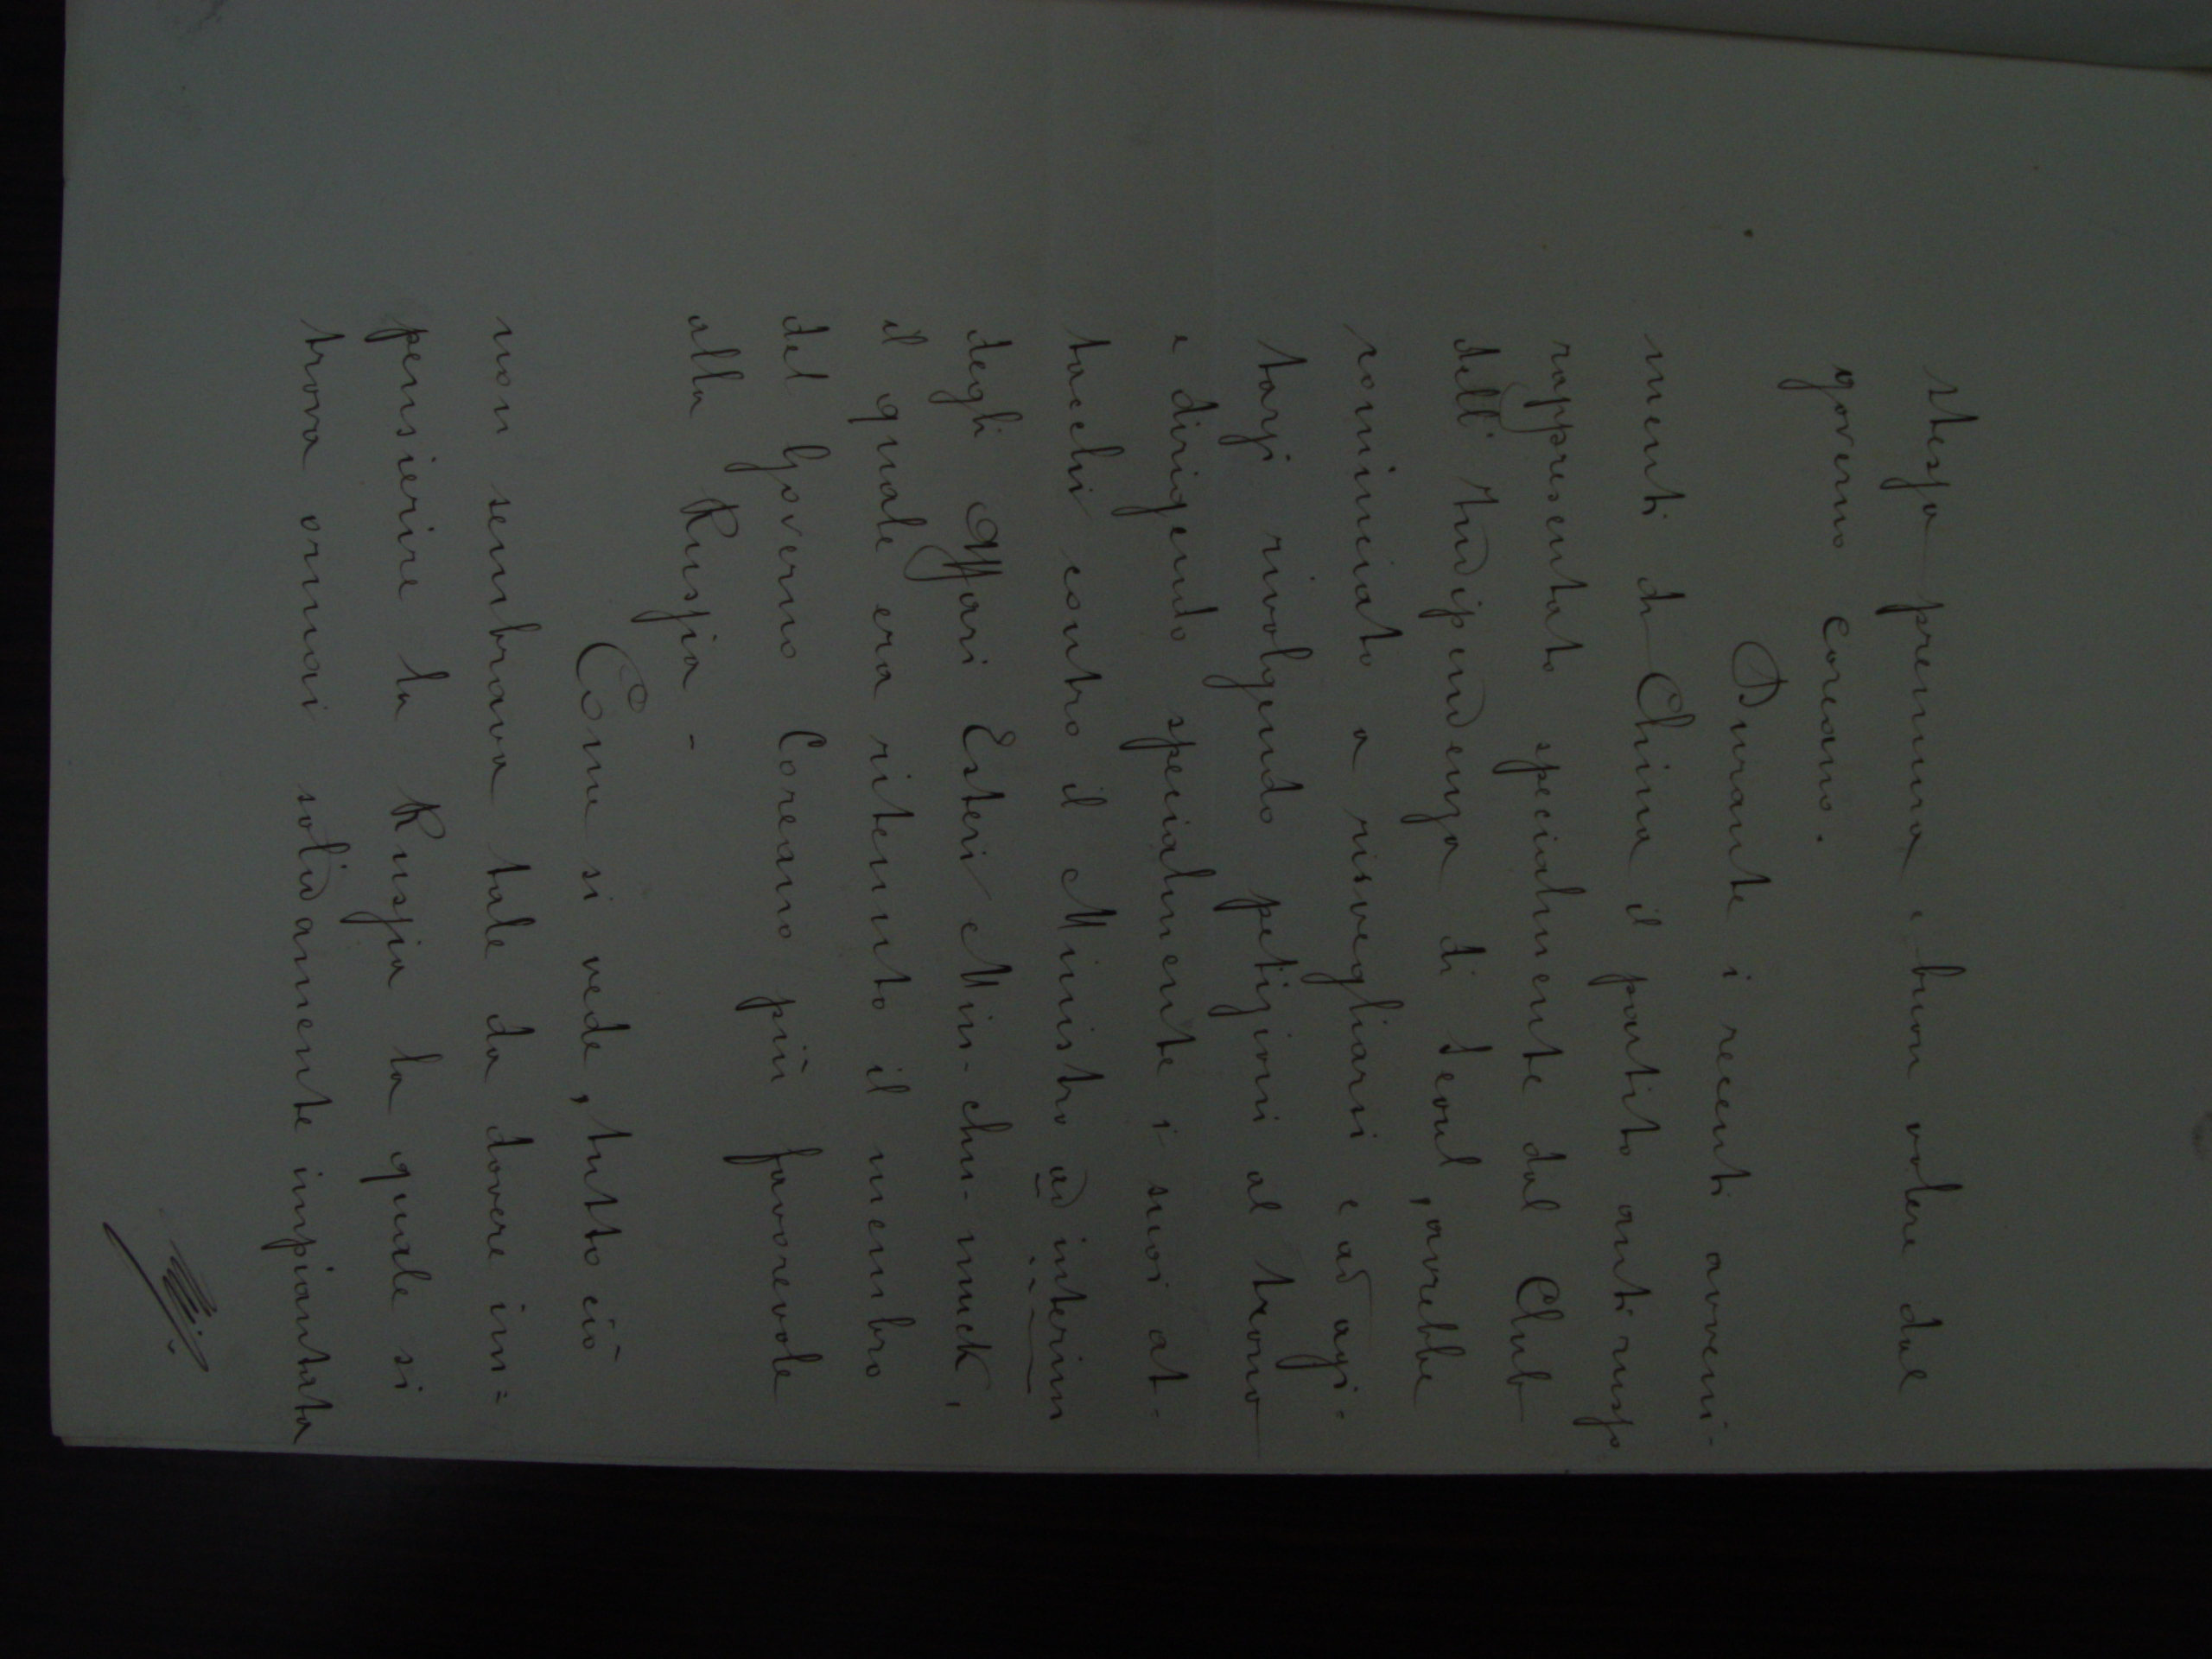 stessa premura e buon volere dal
governo coreano.
Durante i recenti avveni-
menti di China il partito anti russo
rappresentato specialmente dal Club
dell' Indipendenza di Seoul, avrebbe
cominciato a risvegliarsi e ad agi-
tarsi rivolgendo petizioni al trono
e dirigendo specialmente i suoi at-
tacchi contro il Ministro ad interim
degli Affari Esteri Min-chu-muck,
il quale era ritenuto il membro
del Governo Coreano più favorevole
alla Russia -
Come si vede, tutto ciò
non sembrava tale da dovere im=
pensierire la Russia la quale si
trova ormai solidamente impiantata